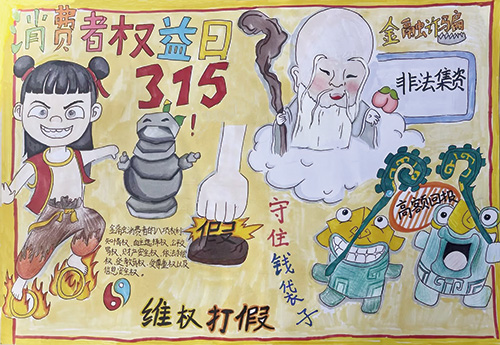 消费者权益日
315!
金融诈骗
非法集资
高额回报
金融消费者的八项权利:
知情权、自主选择权、公平交
易权、财产安全权、依法求偿
权、受教育权、受尊重权以及
信息安全权。
守住钱袋子
维权打假